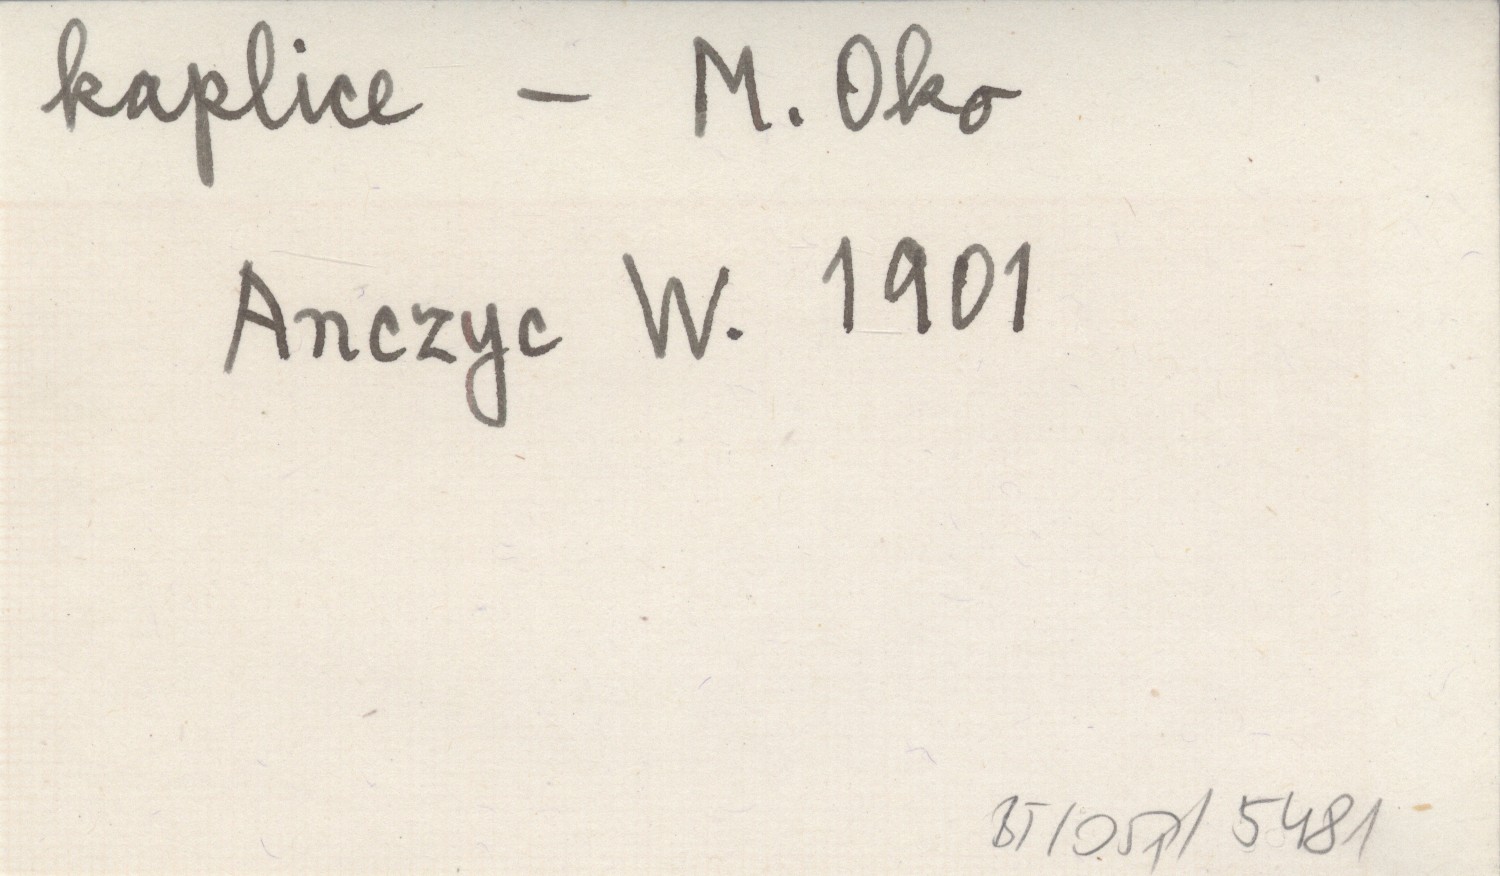 kaplice – M. Oko
Anczyc W. 1901
BT/OSP/ 5481